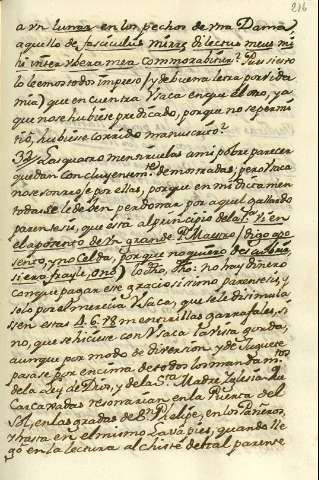 216
a un lunar en los pechos de una Dama,
aquello de fasciculus mirræ dilectus meus mi
hi inter ubera mea commorabitur? Pues esto
lo leemos todos impreso (y de buena letra por
mia) que en cuentra Ysaca en que el otro, ya
que no se hubiese predicado, porque no se permi
tió, hubiese corrido manuscrito?
39 Las quatro mentiruelas a mi pobre parecer
quedan concluyentemte. demostradas; pero Ysaca
no se sonroje por ellas, porque en mi dictamen
todas se le deben perdonar por aquel gallardo
parentesis, que está al principio de la
el aposento de un grande P. Maestro (digo apo
sento, y no Celda, porque no quiero
si era frayle, ó no) no hay dinero
con que pagar ese graciosissimo parentesis, y
solo por el merecia Ysaca, que se le disimula
sen estas 4. 6. ú 8 mentirillas garrafales, si
no, que se hiciese con Ysaca la vista gorda,
aunque por modo de diversion, y de juguete
pasase por encima de todos los mandamtos.
de la Ley de Dios, y de la Sta. Madre Iglesia.
Carcaxadas resonarian en la Puerta del
Sol, en las gradas de Sn. Phelipe, en los Pañeros,
y hasta en el mismo Lavapies, quando lle
gó en la lectura al chiste de tal parente